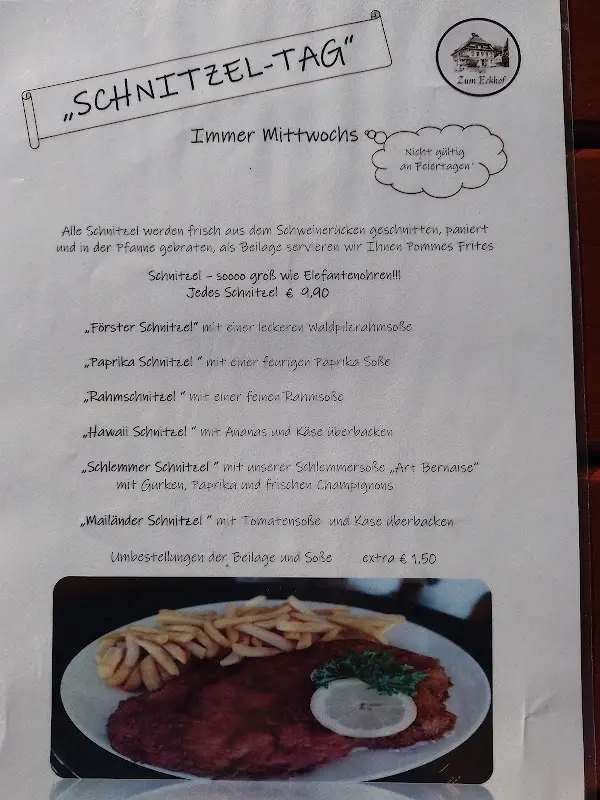 „SCHNITZEL-TAG"
Zum Eckhof
Immer Mittwochs
Nicht gültig
an Feiertagen
Alle Schnitzel werden frisch aus dem Schweinerücken geschnitten, paniert
und in der Pfanne gebraten, als Beilage servieren wir Ihnen Pommes Frites
Schnitzel – soooo groß wie Elefantenohren!!!
Jedes Schnitzel € 9,90
„Förster Schnitzel" mit einer leckeren Waldpilzrahmsoße
„Paprika Schnitzel " mit einer feurigen Paprika Soße
„Rahmschnitzel " mit einer feinen Rahmsoße
„Hawaii Schnitzel " mit Ananas und Käse überbacken
„Schlemmer Schnitzel " mit unserer Schlemmersoße „Art Bernaise"
mit Gurken, Paprika und frischen Champignons
„Mailänder Schnitzel " mit Tomatensoße und Käse überbacken
Umbestellungen der Beilage und Soße extra € 1,50